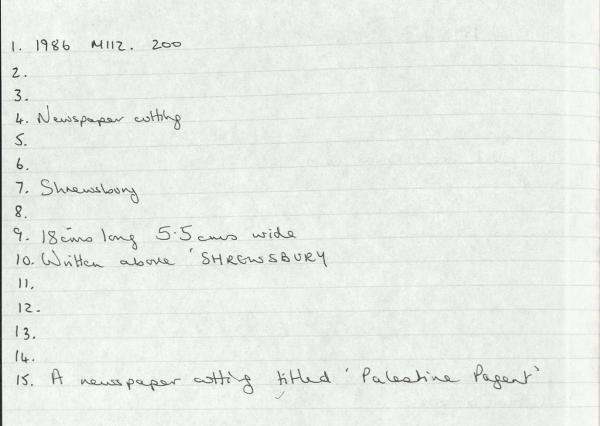 1. 1986 M112. 200
2.
3.
4. Newspaper cutting
5.
6.
7. Shrewsbury
8.
9. 18cms long 5.5cms wide
10. Written above 'SHREWSBURY
11.
12.
13.
14.
15. A newspaper cutting titled 'Palestine Pagent'